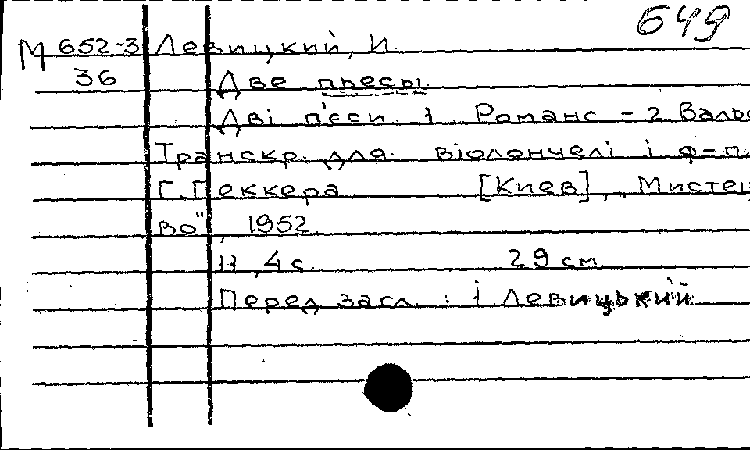 649
М 652-3 Левицкий, И.
36 Две пьесы
Дві п'єси. 1 Романс - 2 Валь
Транскр. для віолончелі і ф-п.
Г. Пеккера [Киев], „Мистец
во", 1952.
4 с. 29 см
Перед загл.: І Левицький